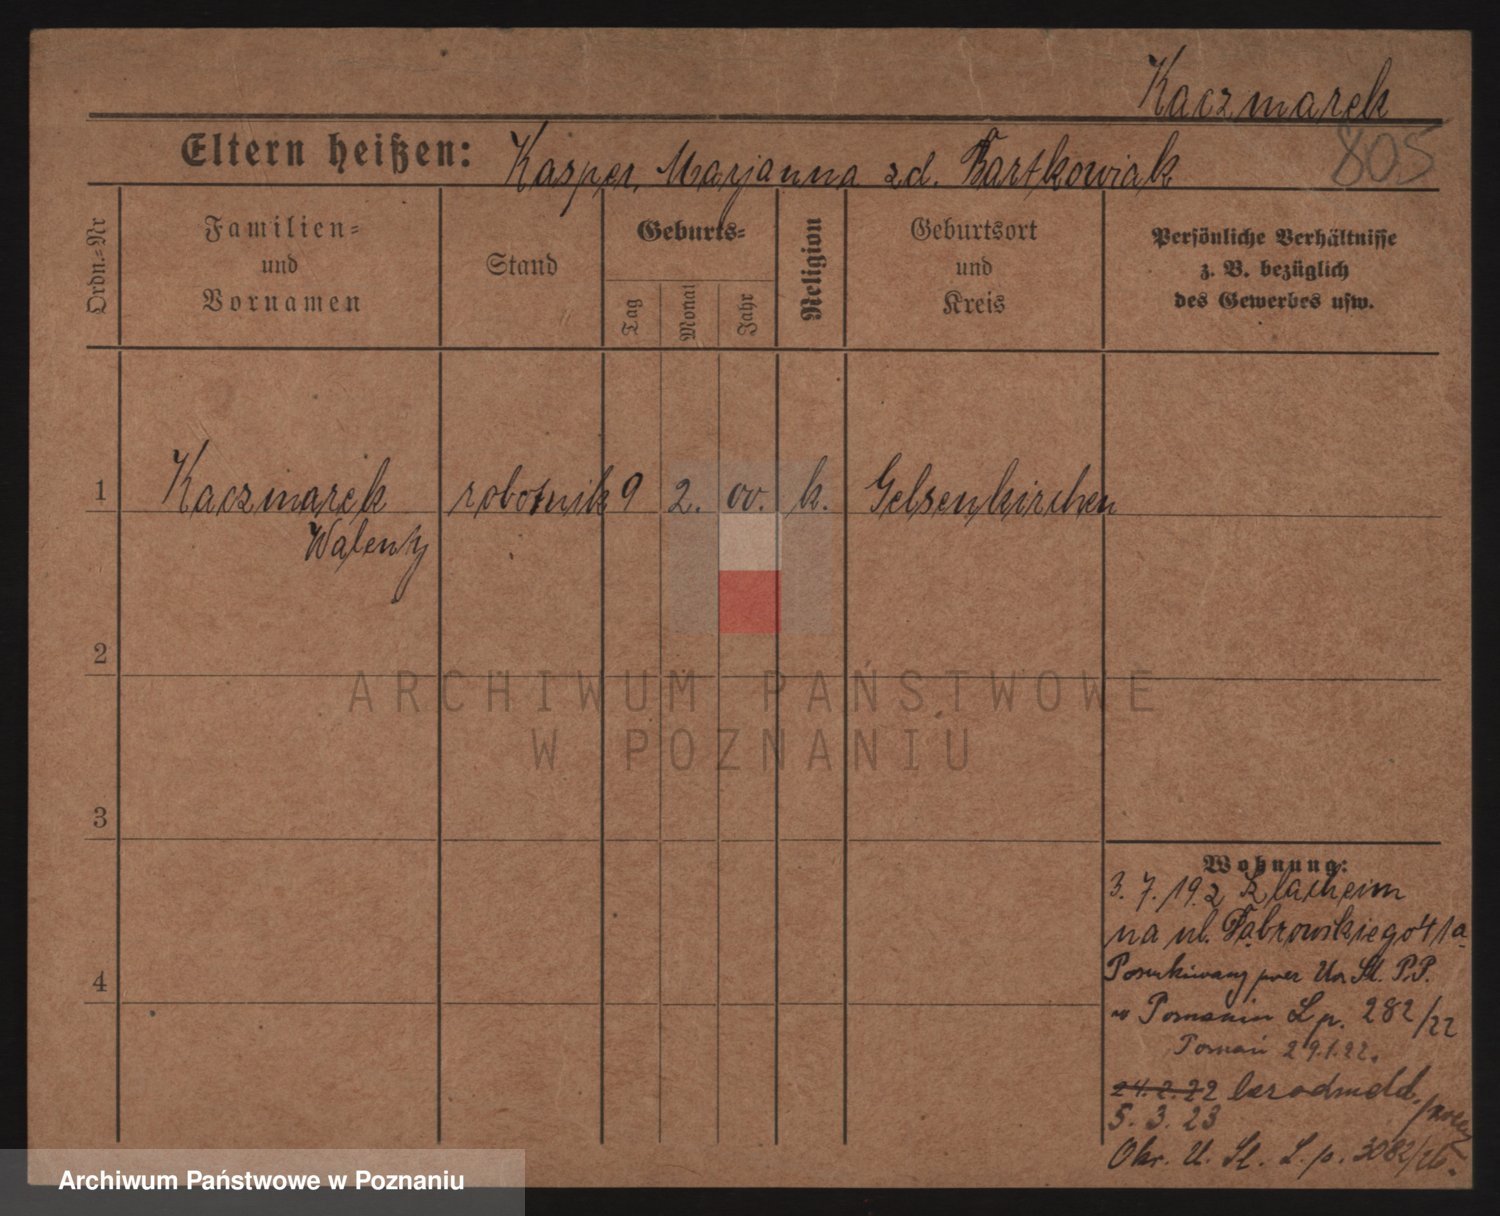 Kaczmarek
Eltern heißen: Kasper, Marjanna zd. Bartkowiak
805
Ordn.=Nr
Familien=
und
Vornamen
Stand
Geburts=
Tag
Monat
Jahr
Religion
Geburtsort
und
Kreis
Persönliche Verhältnisse
z. B. bezüglich
des Gewerbes usw.
1 Kaczmarek robotnik 9 2. 00. k. Gelsenkirchen
Walenty
2
3
4
Wohnung:
3. 7. 19.2
na ul. Dąbrowskiego 41a
Poszukiwany przez Urz. Śl. P.P.
w Poznaniu L.p. 282/22
Poznań 29.1.22.
24.2.22 bez odmeld.
5. 3. 23
Okr. U. Śl. L. p. 3082/26.
ARCHIWUM PAŃSTWOWE
W POZNANIU
Archiwum Państwowe w Poznaniu